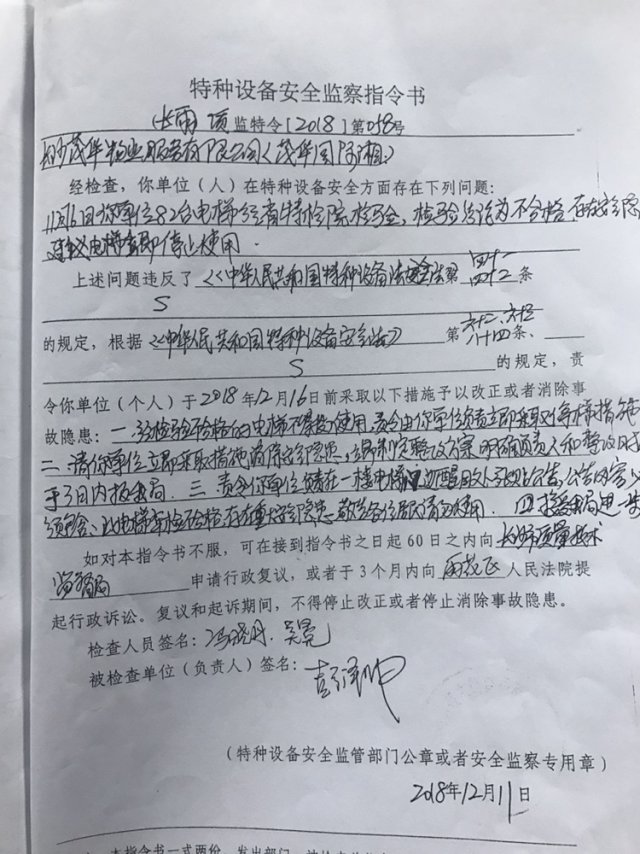 特种设备安全监察指令书
长雨 质监特令[2018]第018号
长沙茂华物业服务有限公司(茂华国际湘)
经检查，你单位（人）在特种设备安全方面存在下列问题：
11月6日你单位82台电梯经省特检院检验，检验结论为不合格 存在安全隐
建议电梯立即停止使用.
上述问题违反了《中华人民共和国特种设备 法》第 四十 四十二 条
S
的规定，根据《中华人民共和国特种设备安全法》 第 八十四条、
S 的规定，责
令你单位（个人）于2018年12月16日前采取以下措施予以改正或者消除事
故隐患：一、经检验 格的电梯不 使用，责令由你单位负责立即采取 停梯措施
二、请你单位立即采取措施消除安全隐患，立即制定整改方案，明确负责人和整改时
于3日内报我局. 三、责令你单位 在一楼电梯 醒目 公告，公告内容
须 、此电梯 检验 格存在 安全隐患 各位居民请勿使用. 四、接受我局进一步
如对本指令书不服，可在接到指令书之日起60日之内向 长沙市质量技术
监督局 申请行政复议，或者于3个月内向 雨花区 人民法院提
起行政诉讼。复议和起诉期间，不得停止改正或者停止消除事故隐患。
检查人员签名：冯晓丹、吴
被检查单位（负责人）签名：彭
（特种设备安全监管部门公章或者安全监察专用章）
2018年12月11日
本指令书一式两份，发出部门、